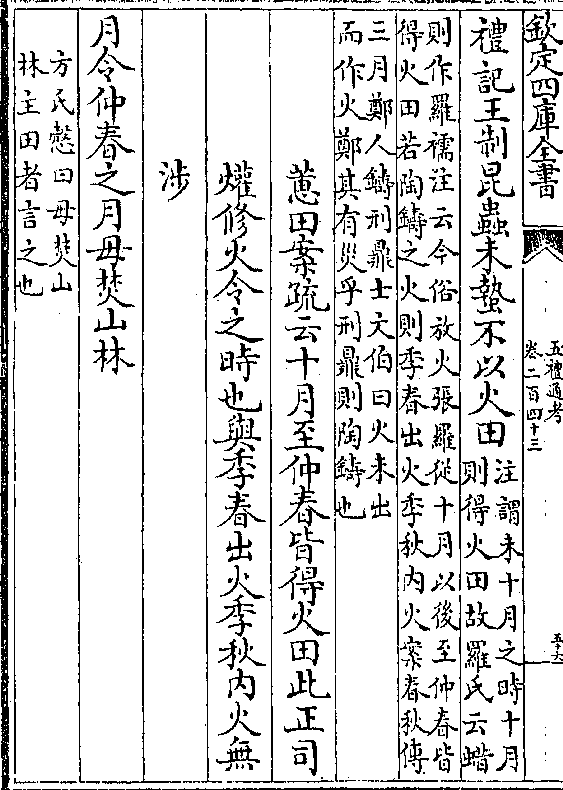 欽定四庫全書
五禮通考
卷二百四十三
五十六
禮記王制昆蟲未蟄不以火田
注謂未十月之時十月
則得火田故羅氏云蜡
則作羅襦注云今俗放火張羅從十月以後至仲春皆
得火田若陶鑄之火則季春出火季秋内火案春秋傳
三月鄭人鑄刑鼎士文伯曰火未出
而作火鄭其有災乎刑鼎則陶鑄也
蕙田案疏云十月至仲春皆得火田此正司
爟修火令之時也與季春出火季秋内火無
涉
月令仲春之月毋焚山林
方氏慤曰毋焚山
林主田者言之也